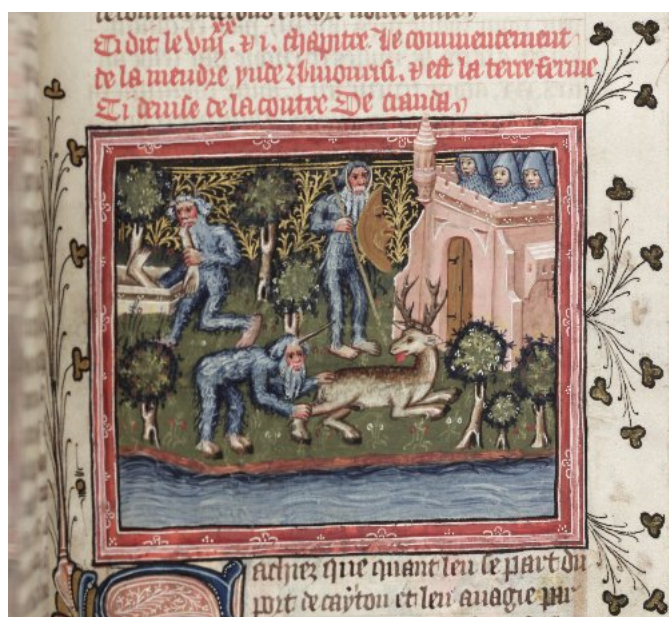 Ci dit le viij. xx i. chapitre. Le commencement
de la mendre ynde est la terre ferme
Ci deuise de la contre De cianda
Sachiez que quant len se part du
port de cayton et len nauagie par